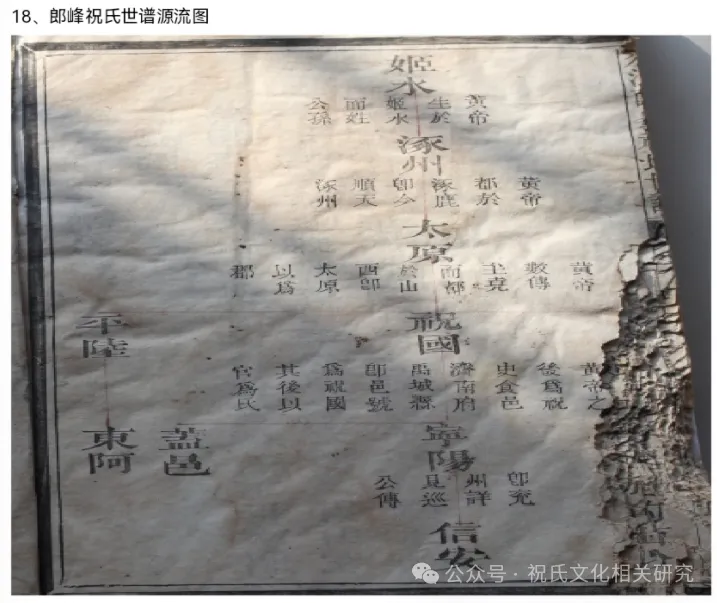 18、郎峰祝氏世谱源流图
姬水
黃帝
生於
姬水
而姓
公孫
涿州
黃帝
都於
涿鹿
卽今
順天
涿州
太原
黃帝
數傳
至堯
而都
於山
西卽
太原
以爲
郡
祝國
黃帝之
後爲祝
史食邑
濟南府
禹城縣
卽邑號
爲祝國
其後以
官爲氏
平陸
寧陽
卽兗
州詳
見巡
公傳
蓋邑
東阿
信安
公众号·祝氏文化相关研究